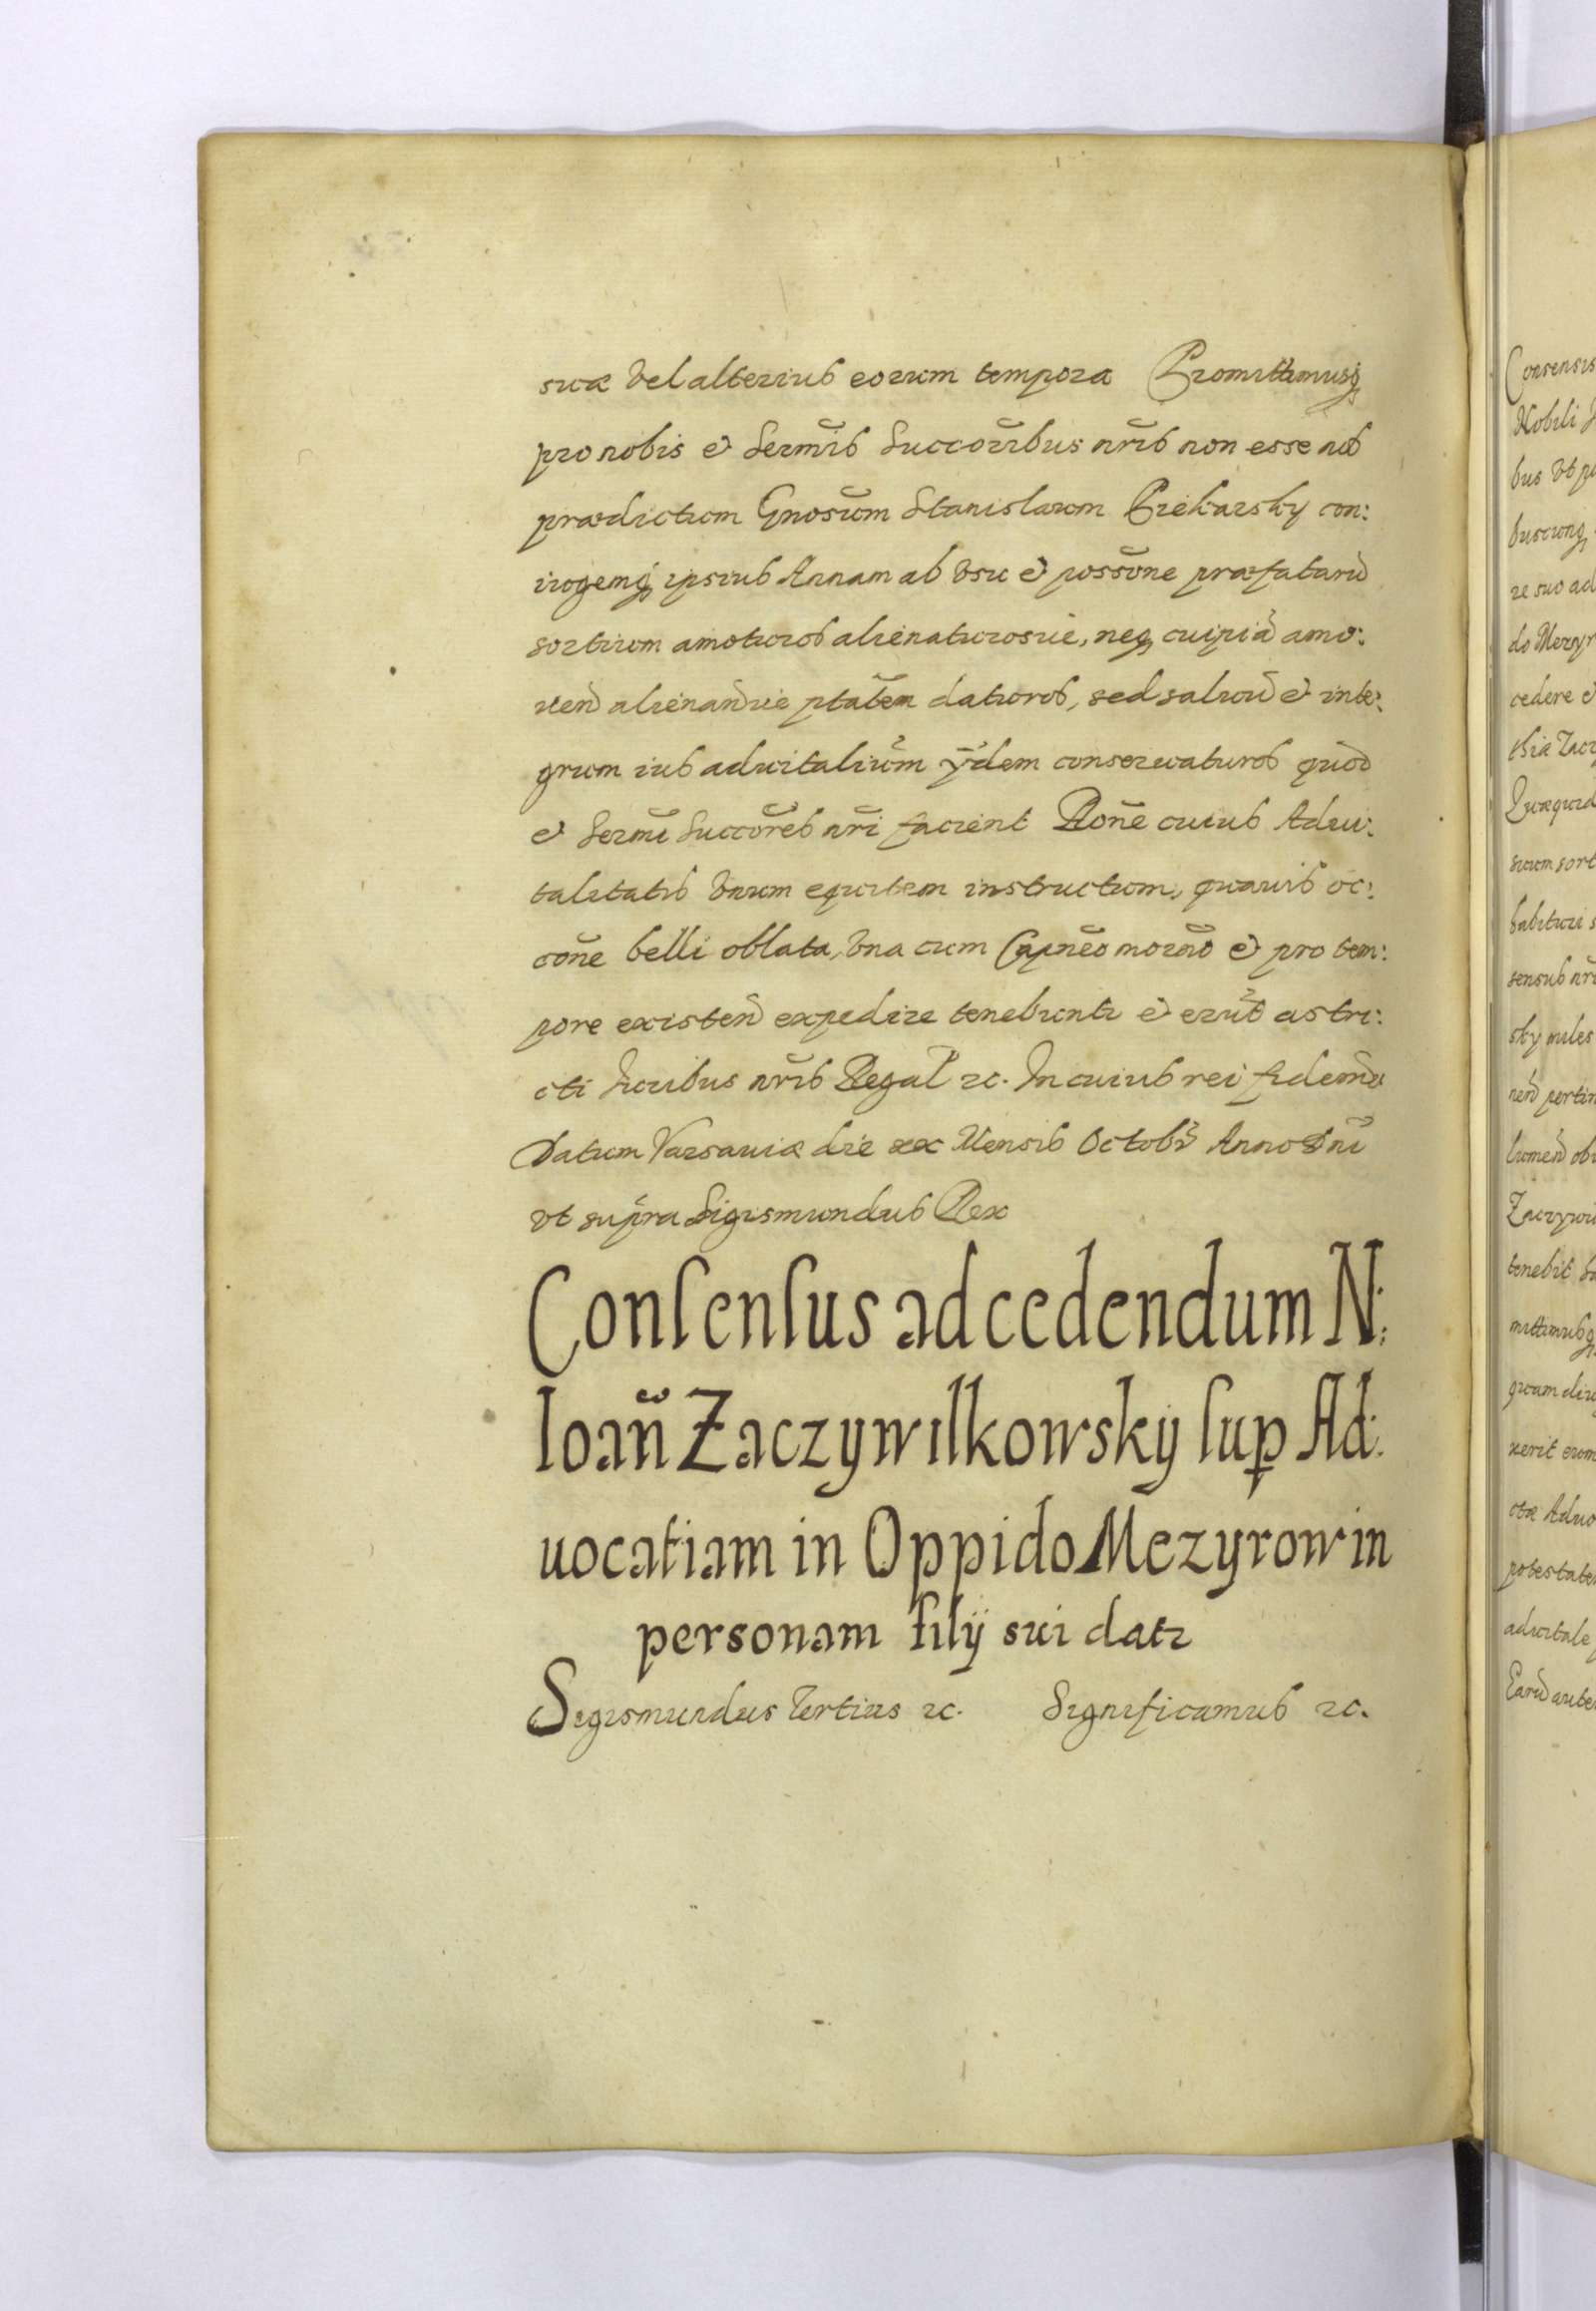 suæ vel alterius eorum tempora Promittimusq̃
pro nobis et Sermis̃ Succorĩbus nr̃is non esse nos
prædictum Gnosũm Stanislaum Piekarsky con:
iugemq̃ ipsius Annam ab vsu et possõne præfatarũ
sortium amoturos alienaturosue, neq̃ cuipiã amo:
uend̃ alienand̃ue ptatẽm daturos, sed saluũ et inte:
grum ius aduitaliũm ijs̃dem conseruaturos quod
et Sermĩ Succorẽs nr̃i facient Rone͂ cuius Adui:
talitatis vnum equitem instructum, quauis oc:
cone͂ belli oblata, vna cum Capneõ moder̃no et pro tem:
pore existen̄ expedire tenebuntr et erũt astri:
cti Iuribus nr̃is Regal̃ ꝛc. In cuius rei fidem̃ ꝛc
Datum Varsauiæ die xx Mensis Octobr̃ Anno Dnĩ
vt supra Sigismundus Rex
Conſenſus ad cedendum N:
Ioañ Zaczywilkowsky ſup Ad:
uocatiam in Oppido Mezyrow in
personam filij sui datr
Sigismundus Tertius ꝛc. Significamus ꝛc.
Consensis
Nobili
bus vt
buscunq̃
re suo ad
do Mezyr
cedere et
Quæquid
suum sort
habituri s
sensus nr̃
sky miles
nend̃ pertin
Zaczywi
tenebit
mittimusq̃
quam diu
xerit eum
ctæ Aduo
potestate
aduitale
Earũ aute